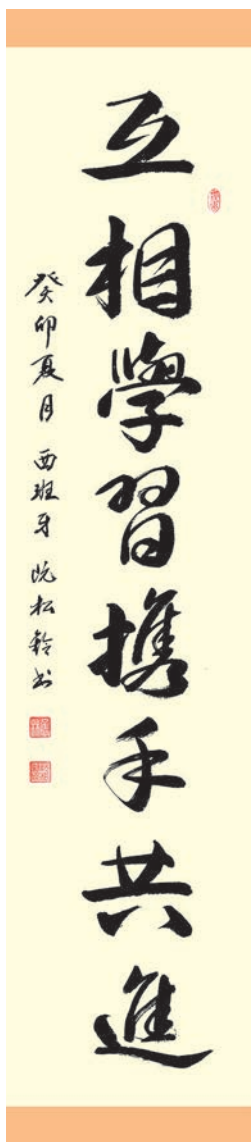 互相學習攜手共進
癸卯夏月 西班牙 阮松鈴书